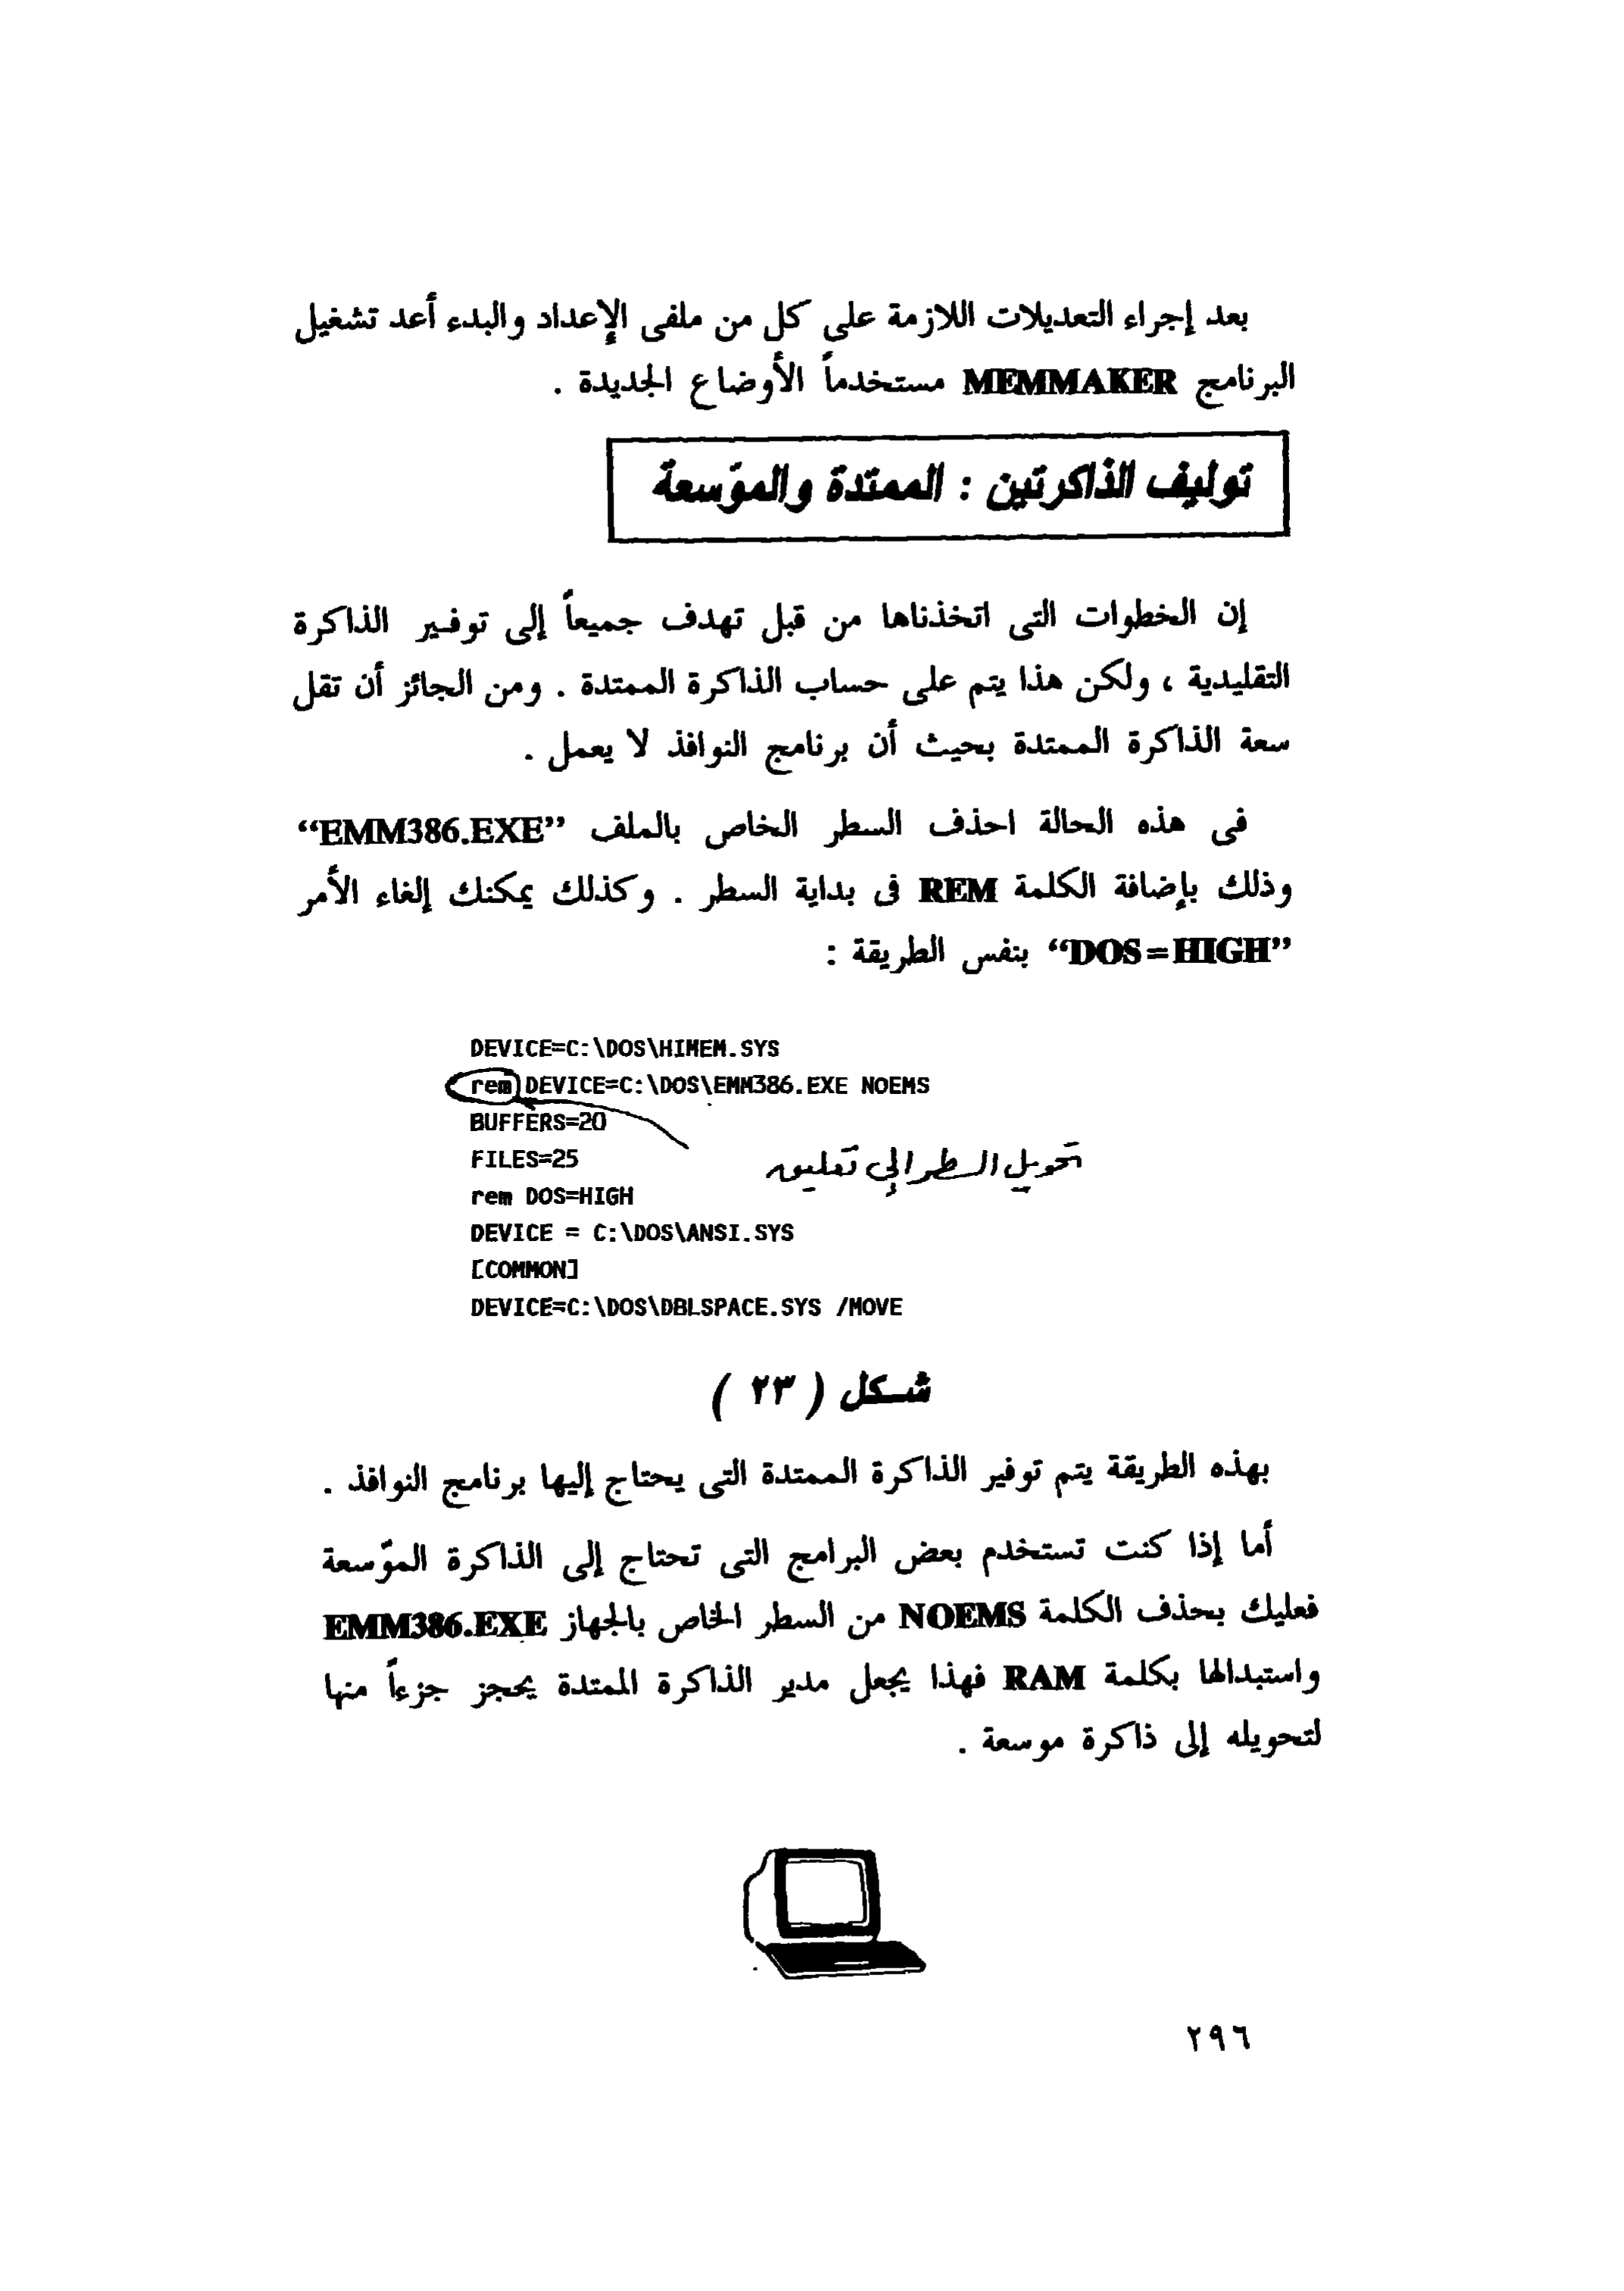 بعد إجراء التعديلات اللازمة على كل من ملفى الإعداد والبدء أعد تشغيل
البرنامج MEMMAKER مستخدماً الأوضاع الجديدة .
توليف الذاكرتين : الممتدة والموّسعة
إن الخطوات التى اتخذناها من قبل تهدف جميعاً إلى توفير الذاكرة
التقليدية ، ولكن هذا يتم على حساب الذاكرة الممتدة . ومن الجائز أن تقل
سعة الذاكرة الممتدة بحيث أن برنامج النوافذ لا يعمل .
فى هذه الحالة احذف السطر الخاص بالملف “EMM386.EXE”
وذلك بإضافة الكلمة REM فى بداية السطر . وكذلك يمكنك إلغاء الأمر
“DOS=HIGH” بنفس الطريقة :
DEVICE=C:\DOS\HIMEM.SYS
rem DEVICE=C:\DOS\EMM386.EXE NOEMS
BUFFERS=20
FILES=25
تحويل السطر إلى تعليق
rem DOS=HIGH
DEVICE = C:\DOS\ANSI.SYS
[COMMON]
DEVICE=C:\DOS\DBLSPACE.SYS /MOVE
شكل ( ٢٣ )
بهذه الطريقة يتم توفير الذاكرة الممتدة التى يحتاج إليها برنامج النوافذ .
أما إذا كنت تستخدم بعض البرامج التى تحتاج إلى الذاكرة الموّسعة
فعليك بحذف الكلمة NOEMS من السطر الخاص بالجهاز EMM386.EXE
واستبدالها بكلمة RAM فهذا يجعل مدير الذاكرة الممتدة يحجز جزءاً منها
لتحويله إلى ذاكرة موسعة .
٢٩٦